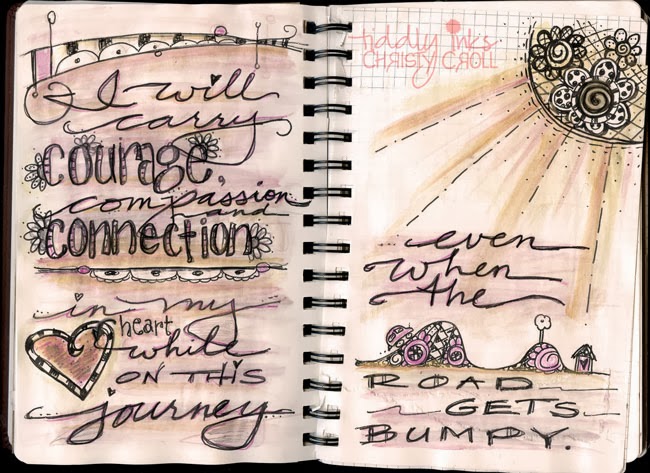 I will
carry
courage,
compassion
and
connection
in my
heart
while
ON THIS
journey
tiddly inks
CHRISTY CROLL
even
when
the
ROAD
GETS
BUMPY.